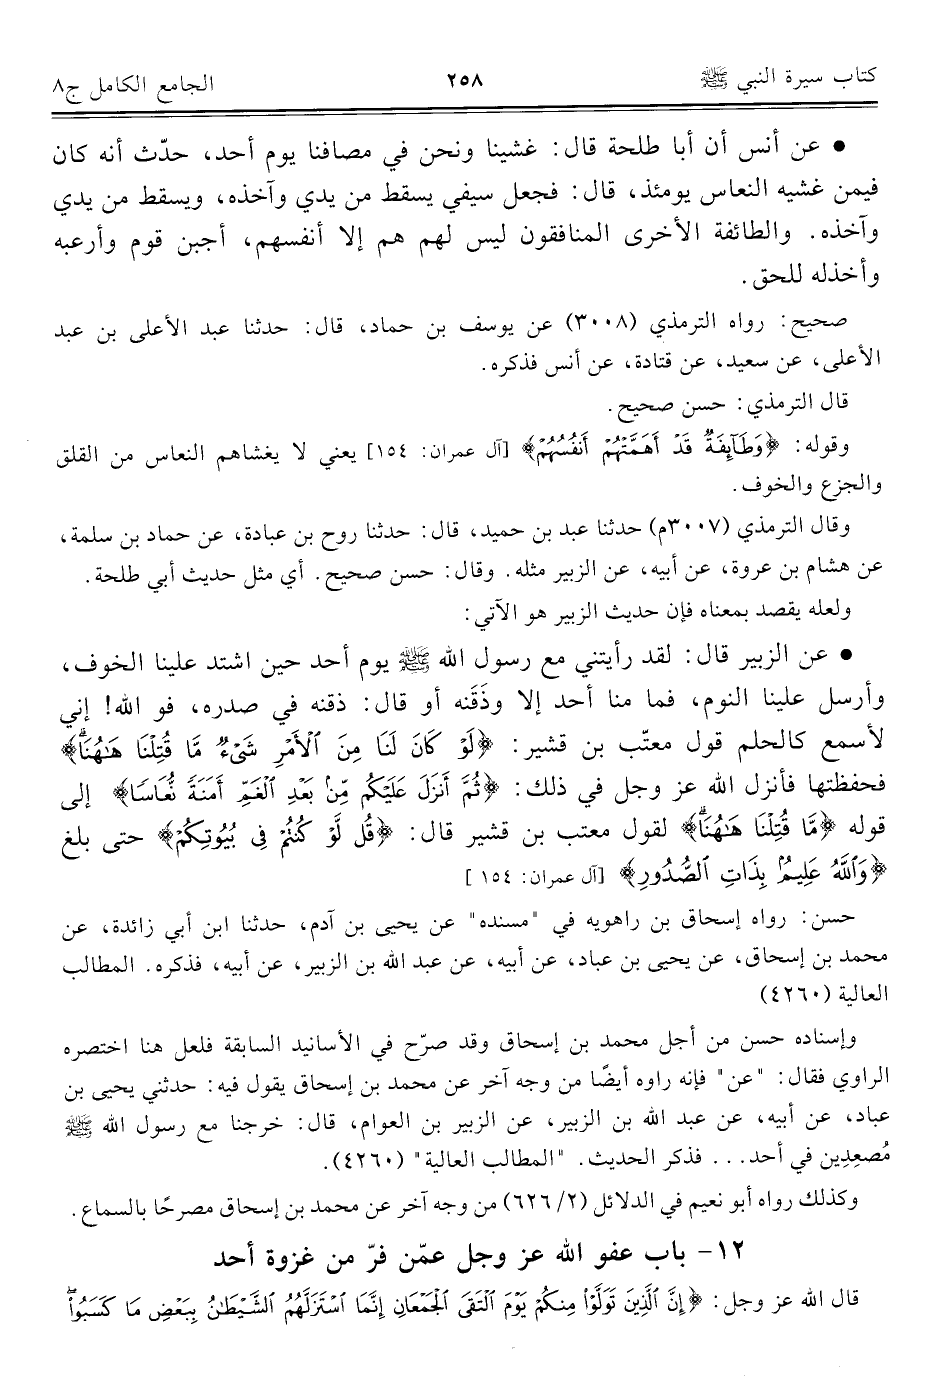 كتاب سيرة النبي ﷺ ٢٥٨ الجامع الكامل ج٨
● عن أنس أن أبا طلحة قال: غشينا ونحن في مصافنا يوم أحد، حدّث أنه كان
فيمن غشيه النعاس يومئذ، قال: فجعل سيفي يسقط من يدي وآخذه، ويسقط من يدي
وآخذه. والطائفة الأخرى المنافقون ليس لهم هم إلا أنفسهم، أجبن قوم وأرعبه
وأخذله للحق.
صحيح: رواه الترمذي (٣٠٠٨) عن يوسف بن حماد، قال: حدثنا عبد الأعلى بن عبد
الأعلى، عن سعيد، عن قتادة، عن أنس فذكره.
قال الترمذي: حسن صحيح.
وقوله: ﴿وَطَآئِفَةٌ قَدۡ أَهَمَّتۡهُمۡ أَنفُسُهُمۡ﴾ [آل عمران: ١٥٤] يعني لا يغشاهم النعاس من القلق
والجزع والخوف.
وقال الترمذي (٣٠٠٧م) حدثنا عبد بن حميد، قال: حدثنا روح بن عبادة، عن حماد بن سلمة،
عن هشام بن عروة، عن أبيه، عن الزبير مثله. وقال: حسن صحيح. أي مثل حديث أبي طلحة.
ولعله يقصد بمعناه فإن حديث الزبير هو الآتي:
● عن الزبير قال: لقد رأيتني مع رسول الله ﷺ يوم أحد حين اشتد علينا الخوف،
وأرسل علينا النوم، فما منا أحد إلا وذَقَنه أو قال: ذقنه في صدره، فو الله! إني
لأسمع كالحلم قول معتّب بن قشير: ﴿لَوۡ كَانَ لَنَا مِنَ ٱلۡأَمۡرِ شَيۡءٞ مَّا قُتِلۡنَا هَٰهُنَاۗ﴾
فحفظتها فأنزل الله عز وجل في ذلك: ﴿ثُمَّ أَنزَلَ عَلَيۡكُم مِّنۢ بَعۡدِ ٱلۡغَمِّ أَمَنَةٗ نُّعَاسٗا﴾ إلى
قوله ﴿مَّا قُتِلۡنَا هَٰهُنَاۗ﴾ لقول معتب بن قشير قال: ﴿قُل لَّوۡ كُنتُمۡ فِي بُيُوتِكُمۡ﴾ حتى بلغ
﴿وَٱللَّهُ عَلِيمُۢ بِذَاتِ ٱلصُّدُورِ﴾ [آل عمران: ١٥٤]
حسن: رواه إسحاق بن راهويه في "مسنده" عن يحيى بن آدم، حدثنا ابن أبي زائدة، عن
محمد بن إسحاق، عن يحيى بن عباد، عن أبيه، عن عبد الله بن الزبير، عن أبيه، فذكره. المطالب
العالية (٤٢٦٠)
وإسناده حسن من أجل محمد بن إسحاق وقد صرّح في الأسانيد السابقة فلعل هنا اختصره
الراوي فقال: "عن" فإنه راوه أيضًا من وجه آخر عن محمد بن إسحاق يقول فيه: حدثني يحيى بن
عباد، عن أبيه، عن عبد الله بن الزبير، عن الزبير بن العوام، قال: خرجنا مع رسول الله ﷺ
مُصعِدِين في أحد... فذكر الحديث. "المطالب العالية" (٤٢٦٠).
وكذلك رواه أبو نعيم في الدلائل (٢/ ٦٢٦) من وجه آخر عن محمد بن إسحاق مصرحًا بالسماع.
١٢- باب عفو الله عز وجل عمّن فرّ من غزوة أحد
قال الله عز وجل: ﴿إِنَّ ٱلَّذِينَ تَوَلَّوۡاْ مِنكُمۡ يَوۡمَ ٱلۡتَقَى ٱلۡجَمۡعَانِ إِنَّمَا ٱسۡتَزَلَّهُمُ ٱلشَّيۡطَٰنُ بِبَعۡضِ مَا كَسَبُواْۖ